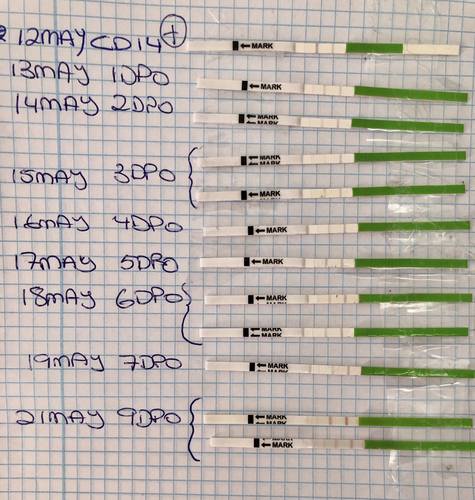 12MAY CD14 + ← MARK
13MAY 1DPO ← MARK
14MAY 2DPO ← MARK
← MARK
15MAY 3DPO ← MARK
16MAY 4DPO ← MARK
17MAY 5DPO ← MARK
18MAY 6DPO ← MARK
← MARK
19MAY 7DPO ← MARK
21MAY 9DPO ← MARK
← MARK